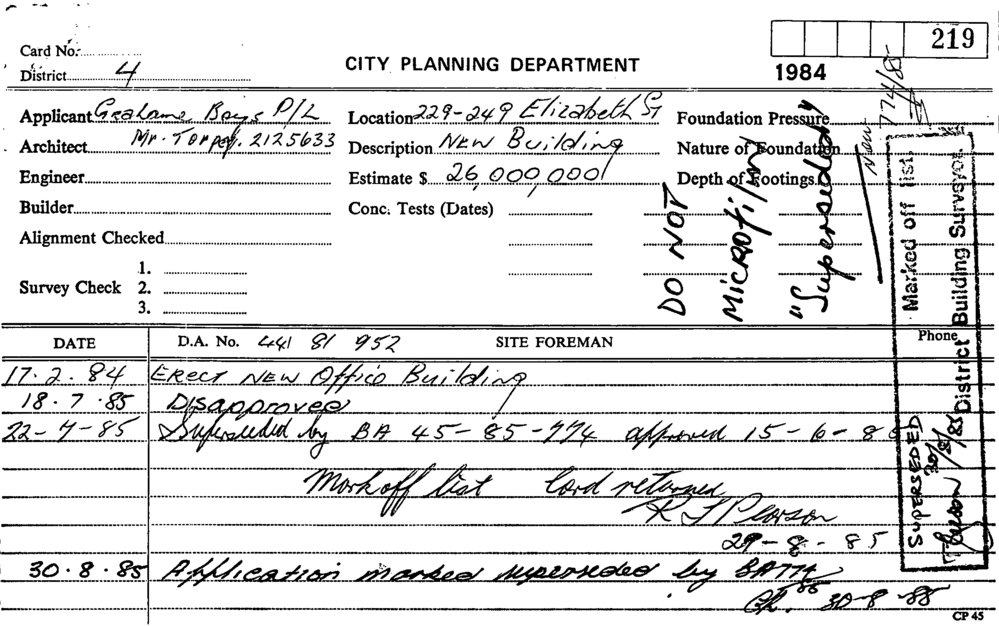 219
Card No.
CITY PLANNING DEPARTMENT
District 4
1984
774/85
Applicant Grahame Bays P/L
Location 229-249 Elizabeth St
Foundation Pressure
Architect Mr. Torpey. 2125633
Description New Building
Nature of Foundation
New
Engineer
Estimate $ 26,000,000/
Depth of Footings
Builder
Conc. Tests (Dates)
Alignment Checked
DO NOT
MICROfilm
"Superseded"
1.
Survey Check 2.
3.
SUPERSEDED Marked off list.
30/8/85 District Building Surveyor.
DATE D.A. No. 441 81 952 SITE FOREMAN Phone
17.2.84 Erect New Office Building
18.7.85 Disapproved
22-7-85 Superseded by BA 45-85-774 approved 15-6-8
Mark off list Card returned
R J Pearson
29-8-85
30.8.85 Application marked superseded by BA774/85
30-8-85
CP 45